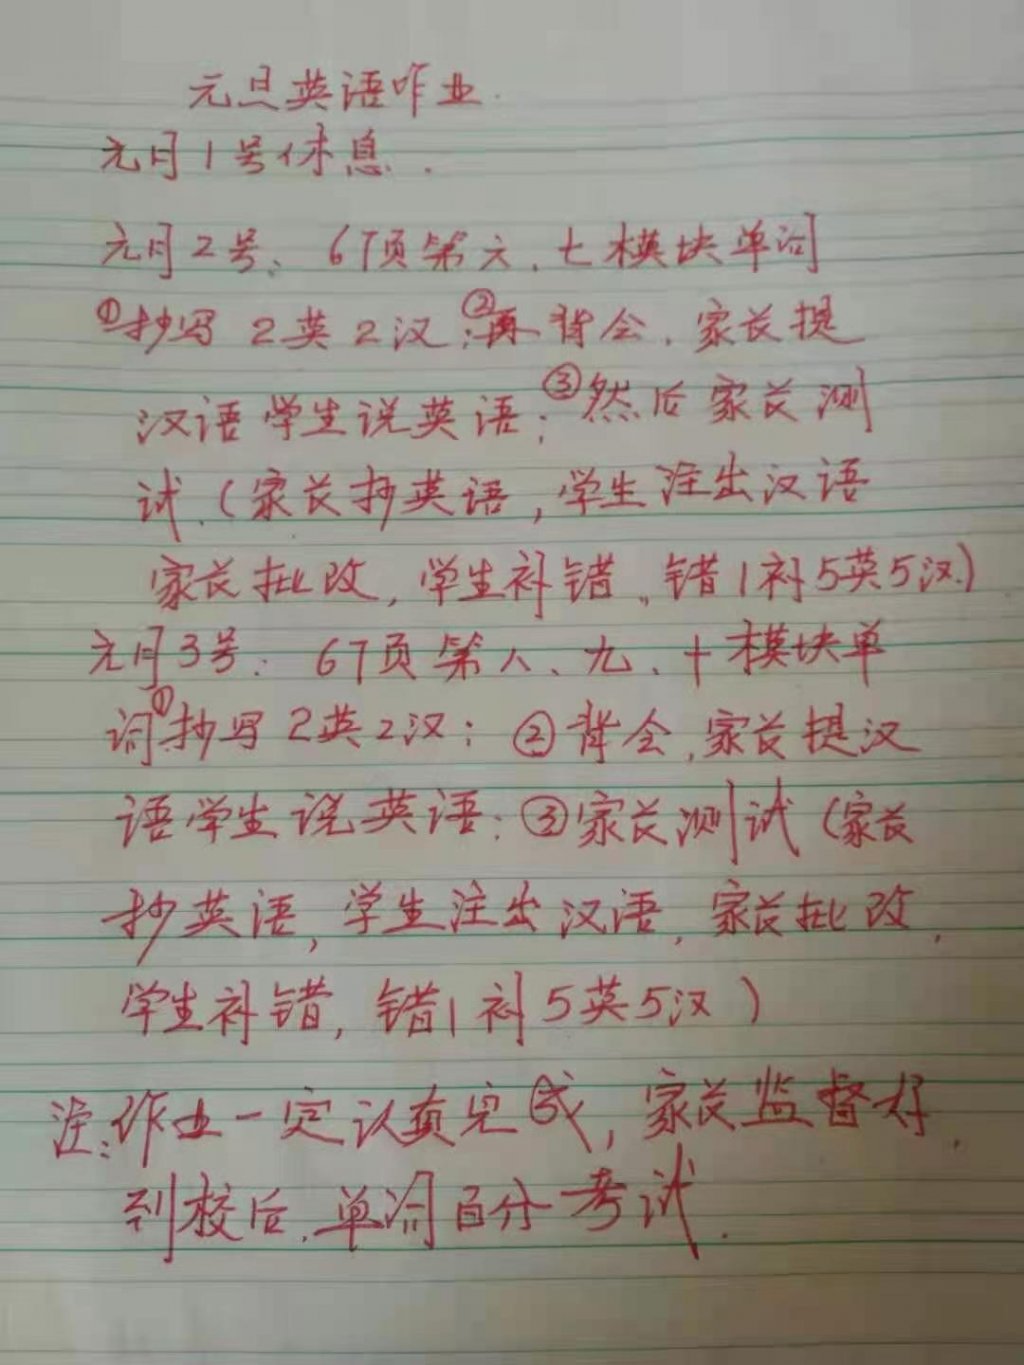 元旦英语作业.
元月1号休息.
元月2号: 67页第六、七模块单词
①抄写2英2汉;②再背会,家长提
汉语学生说英语;③然后家长测
试.(家长抄英语,学生注出汉语
家长批改,学生补错。错1补5英5汉.)
元月3号: 67页第八、九、十模块单
词①抄写2英2汉;②背会,家长提汉
语学生说英语;③家长测试(家长
抄英语,学生注出汉语,家长批改,
学生补错,错1补5英5汉)
注:作业一定认真完成,家长监督好,
到校后,单词百分考试.